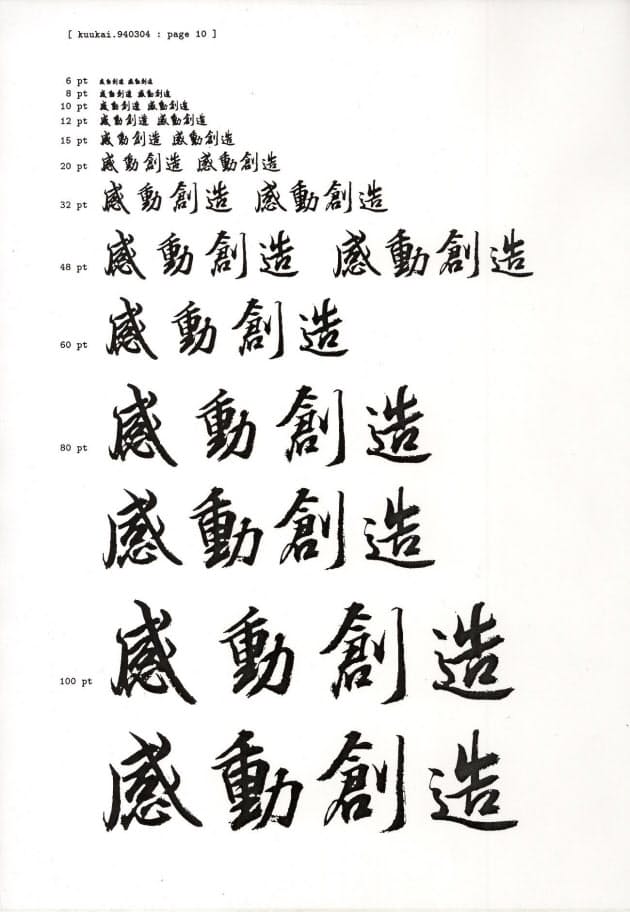 [ kuukai.940304 : page 10 ]
6 pt 感動創造 感動創造
8 pt 感動創造 感動創造
10 pt 感動創造 感動創造
12 pt 感動創造 感動創造
15 pt 感動創造 感動創造
20 pt 感動創造 感動創造
32 pt 感動創造 感動創造
48 pt 感動創造 感動創造
60 pt 感動創造
80 pt 感動創造
感動創造
100 pt 感動創造
感動創造